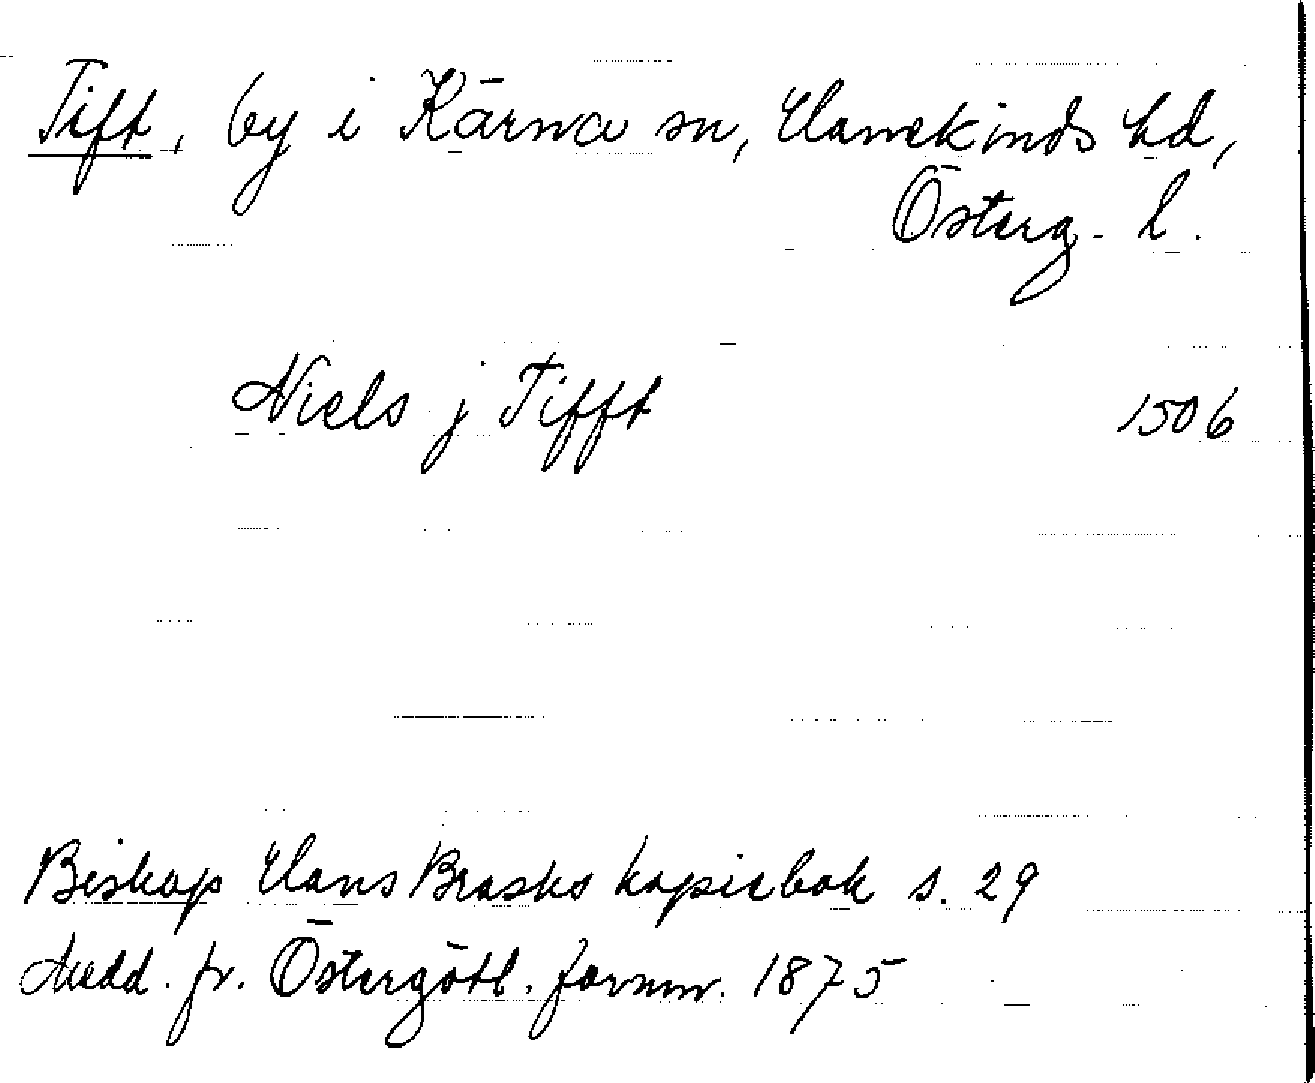 Tift, by i Kärna sn, Hanekinds hd,
Österg. l.
Niels j Tifft 1506
Biskop Hans Brasks kopiebok s. 29
Medd. fr. Östergötl. fornm. 1875